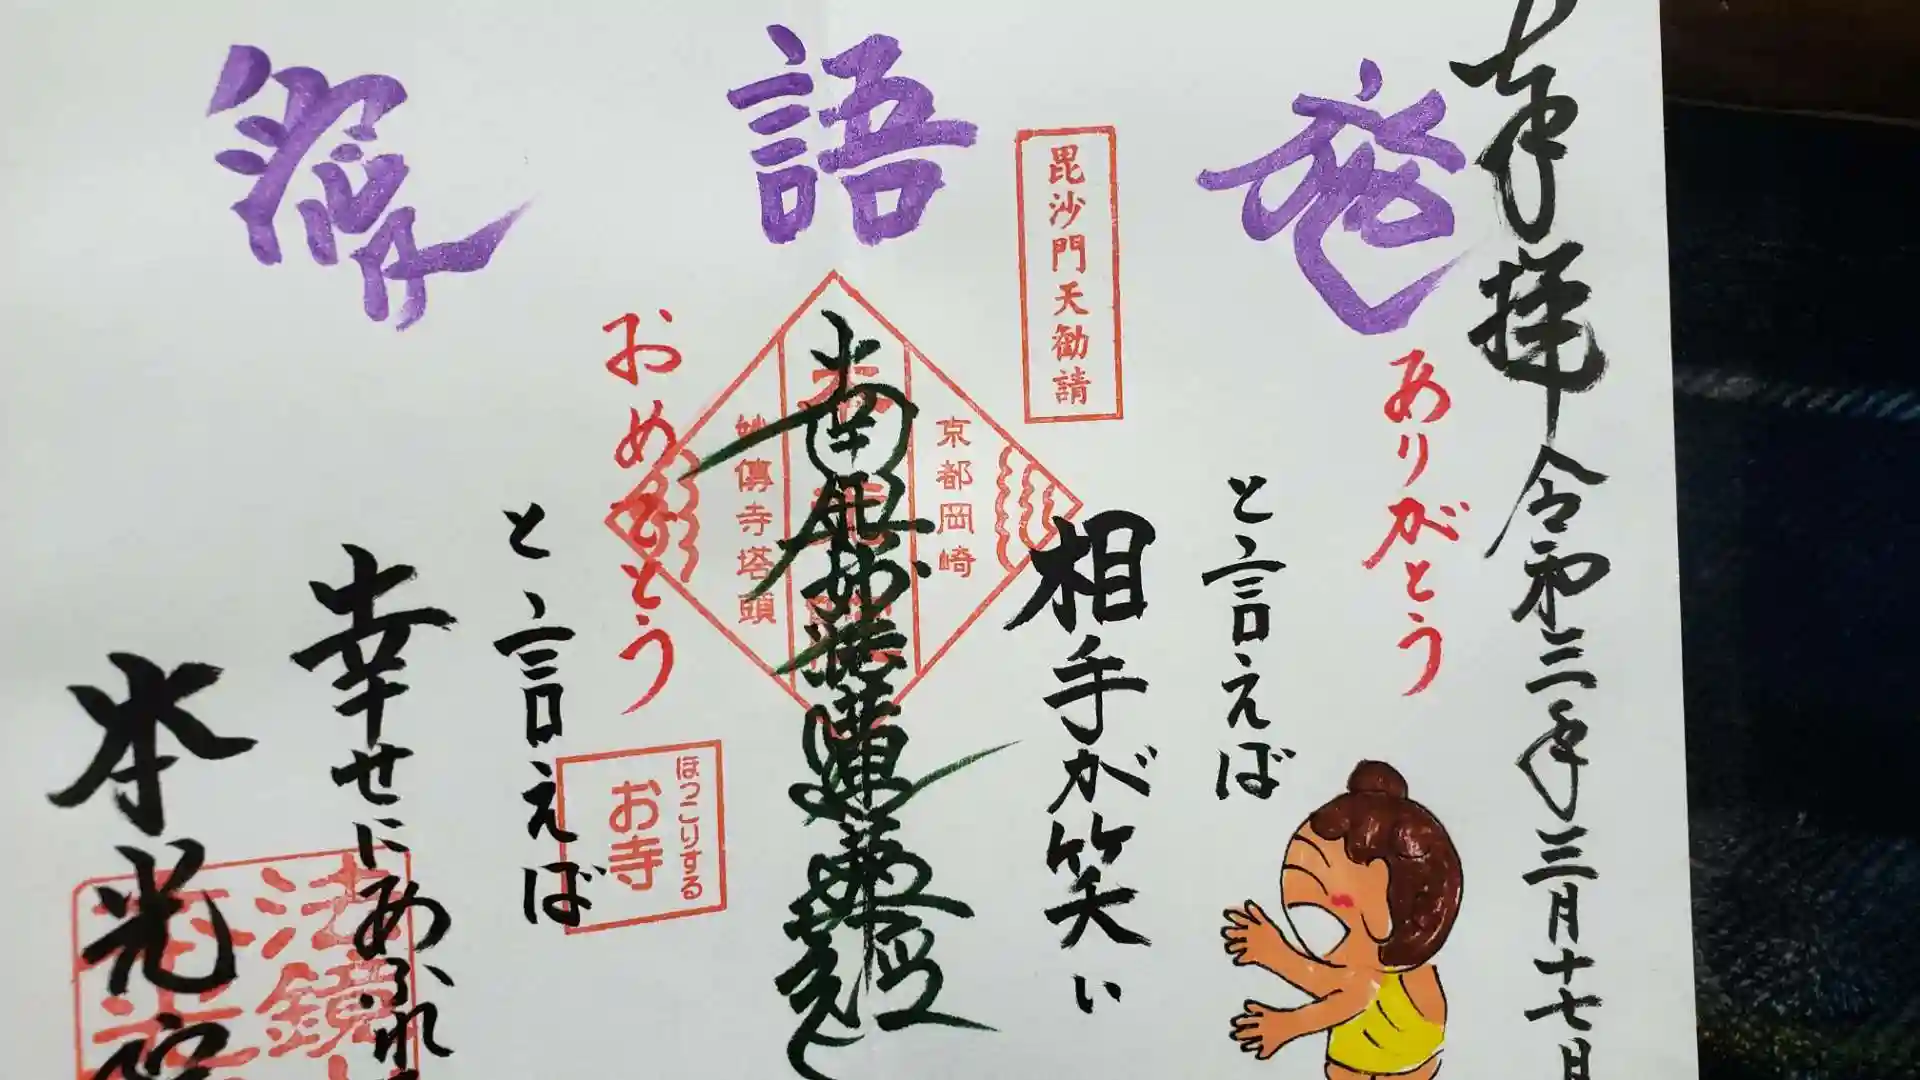 奉拝 令和三年三月十七日
愛
語
ありがとう
と言えば
毘沙門天勧請
相手が笑い
京都岡崎
南無妙法蓮華経
妙傳寺塔頭
おめでとう
と言えば
ほっこりする
お寺
幸せにあふれ
本光院
法鏡